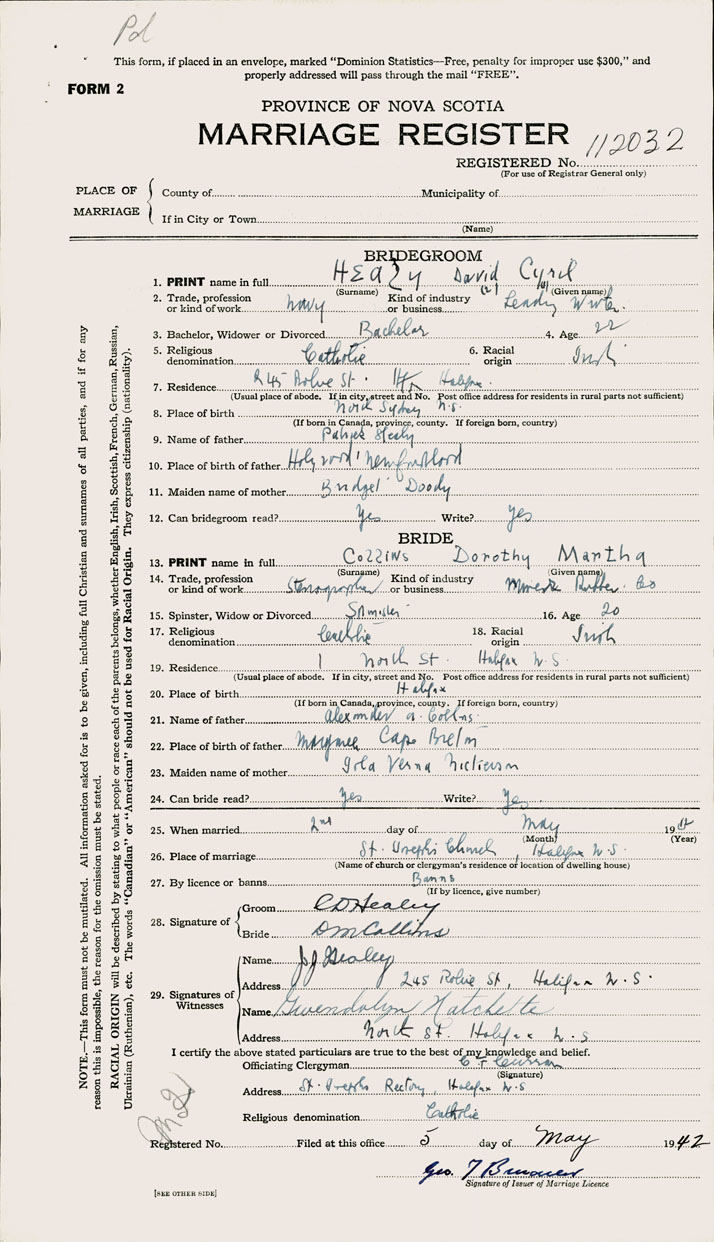 Pd
This form, if placed in an envelope, marked "Dominion Statistics—Free, penalty for improper use $300," and
properly addressed will pass through the mail "FREE".
FORM 2
PROVINCE OF NOVA SCOTIA
MARRIAGE REGISTER
REGISTERED No. 112032
(For use of Registrar General only)
PLACE OF MARRIAGE
County of Municipality of
If in City or Town
(Name)
BRIDEGROOM
1. PRINT name in full HEALY David Cyril
(Surname) (Given name)
2. Trade, profession or kind of work Navy Kind of industry or business Leading Writer
3. Bachelor, Widower or Divorced Bachelor 4. Age 22
5. Religious denomination Catholic 6. Racial origin Irish
7. Residence St. Halifax
(Usual place of abode. If in city, street and No. Post office address for residents in rural parts not sufficient)
8. Place of birth North Sydney N.S.
(If born in Canada, province, county. If foreign born, country)
9. Name of father Patrick Healy
10. Place of birth of father Holyrood Newfoundland
11. Maiden name of mother Bridget Doody
12. Can bridegroom read? Yes Write? Yes
BRIDE
13. PRINT name in full Collins Dorothy Martha
(Surname) (Given name)
14. Trade, profession or kind of work Stenographer Kind of industry or business Rubber Co
15. Spinster, Widow or Divorced Spinster 16. Age 20
17. Religious denomination Catholic 18. Racial origin Irish
19. Residence 1 North St. Halifax N.S.
(Usual place of abode. If in city, street and No. Post office address for residents in rural parts not sufficient)
20. Place of birth Halifax
(If born in Canada, province, county. If foreign born, country)
21. Name of father Alexander A. Collins
22. Place of birth of father Margaree Cape Breton
23. Maiden name of mother Verna Nickerson
24. Can bride read? Yes Write? Yes
25. When married 2nd day of May 19
(Month) (Year)
26. Place of marriage St. Josephs Church, Halifax N.S.
(Name of church or clergyman's residence or location of dwelling house)
27. By licence or banns Banns
(If by licence, give number)
28. Signature of
Groom C D Healey
Bride D M Collins
29. Signatures of Witnesses
Name J J Healey
Address 245 St, Halifax N.S.
Name Gwendolyn Hatchette
Address North St. Halifax N.S
I certify the above stated particulars are true to the best of my knowledge and belief.
Officiating Clergyman Curran
(Signature)
Address St. Josephs Rectory, Halifax N.S
Religious denomination Catholic
Registered No. Filed at this office 5 day of May 1942
Geo. T
Signature of Issuer of Marriage Licence
[SEE OTHER SIDE]
NOTE.—This form must not be mutilated. All information asked for is to be given, including full Christian and surnames of all parties, and if for any
reason this is impossible, the reason for the omission must be stated.
RACIAL ORIGIN will be described by stating to what people or race each of the parents belongs, whether English, Irish, Scottish, French, German, Russian,
Ukrainian (Ruthenian), etc. The words "Canadian" or "American" should not be used for Racial Origin. They express citizenship (nationality).